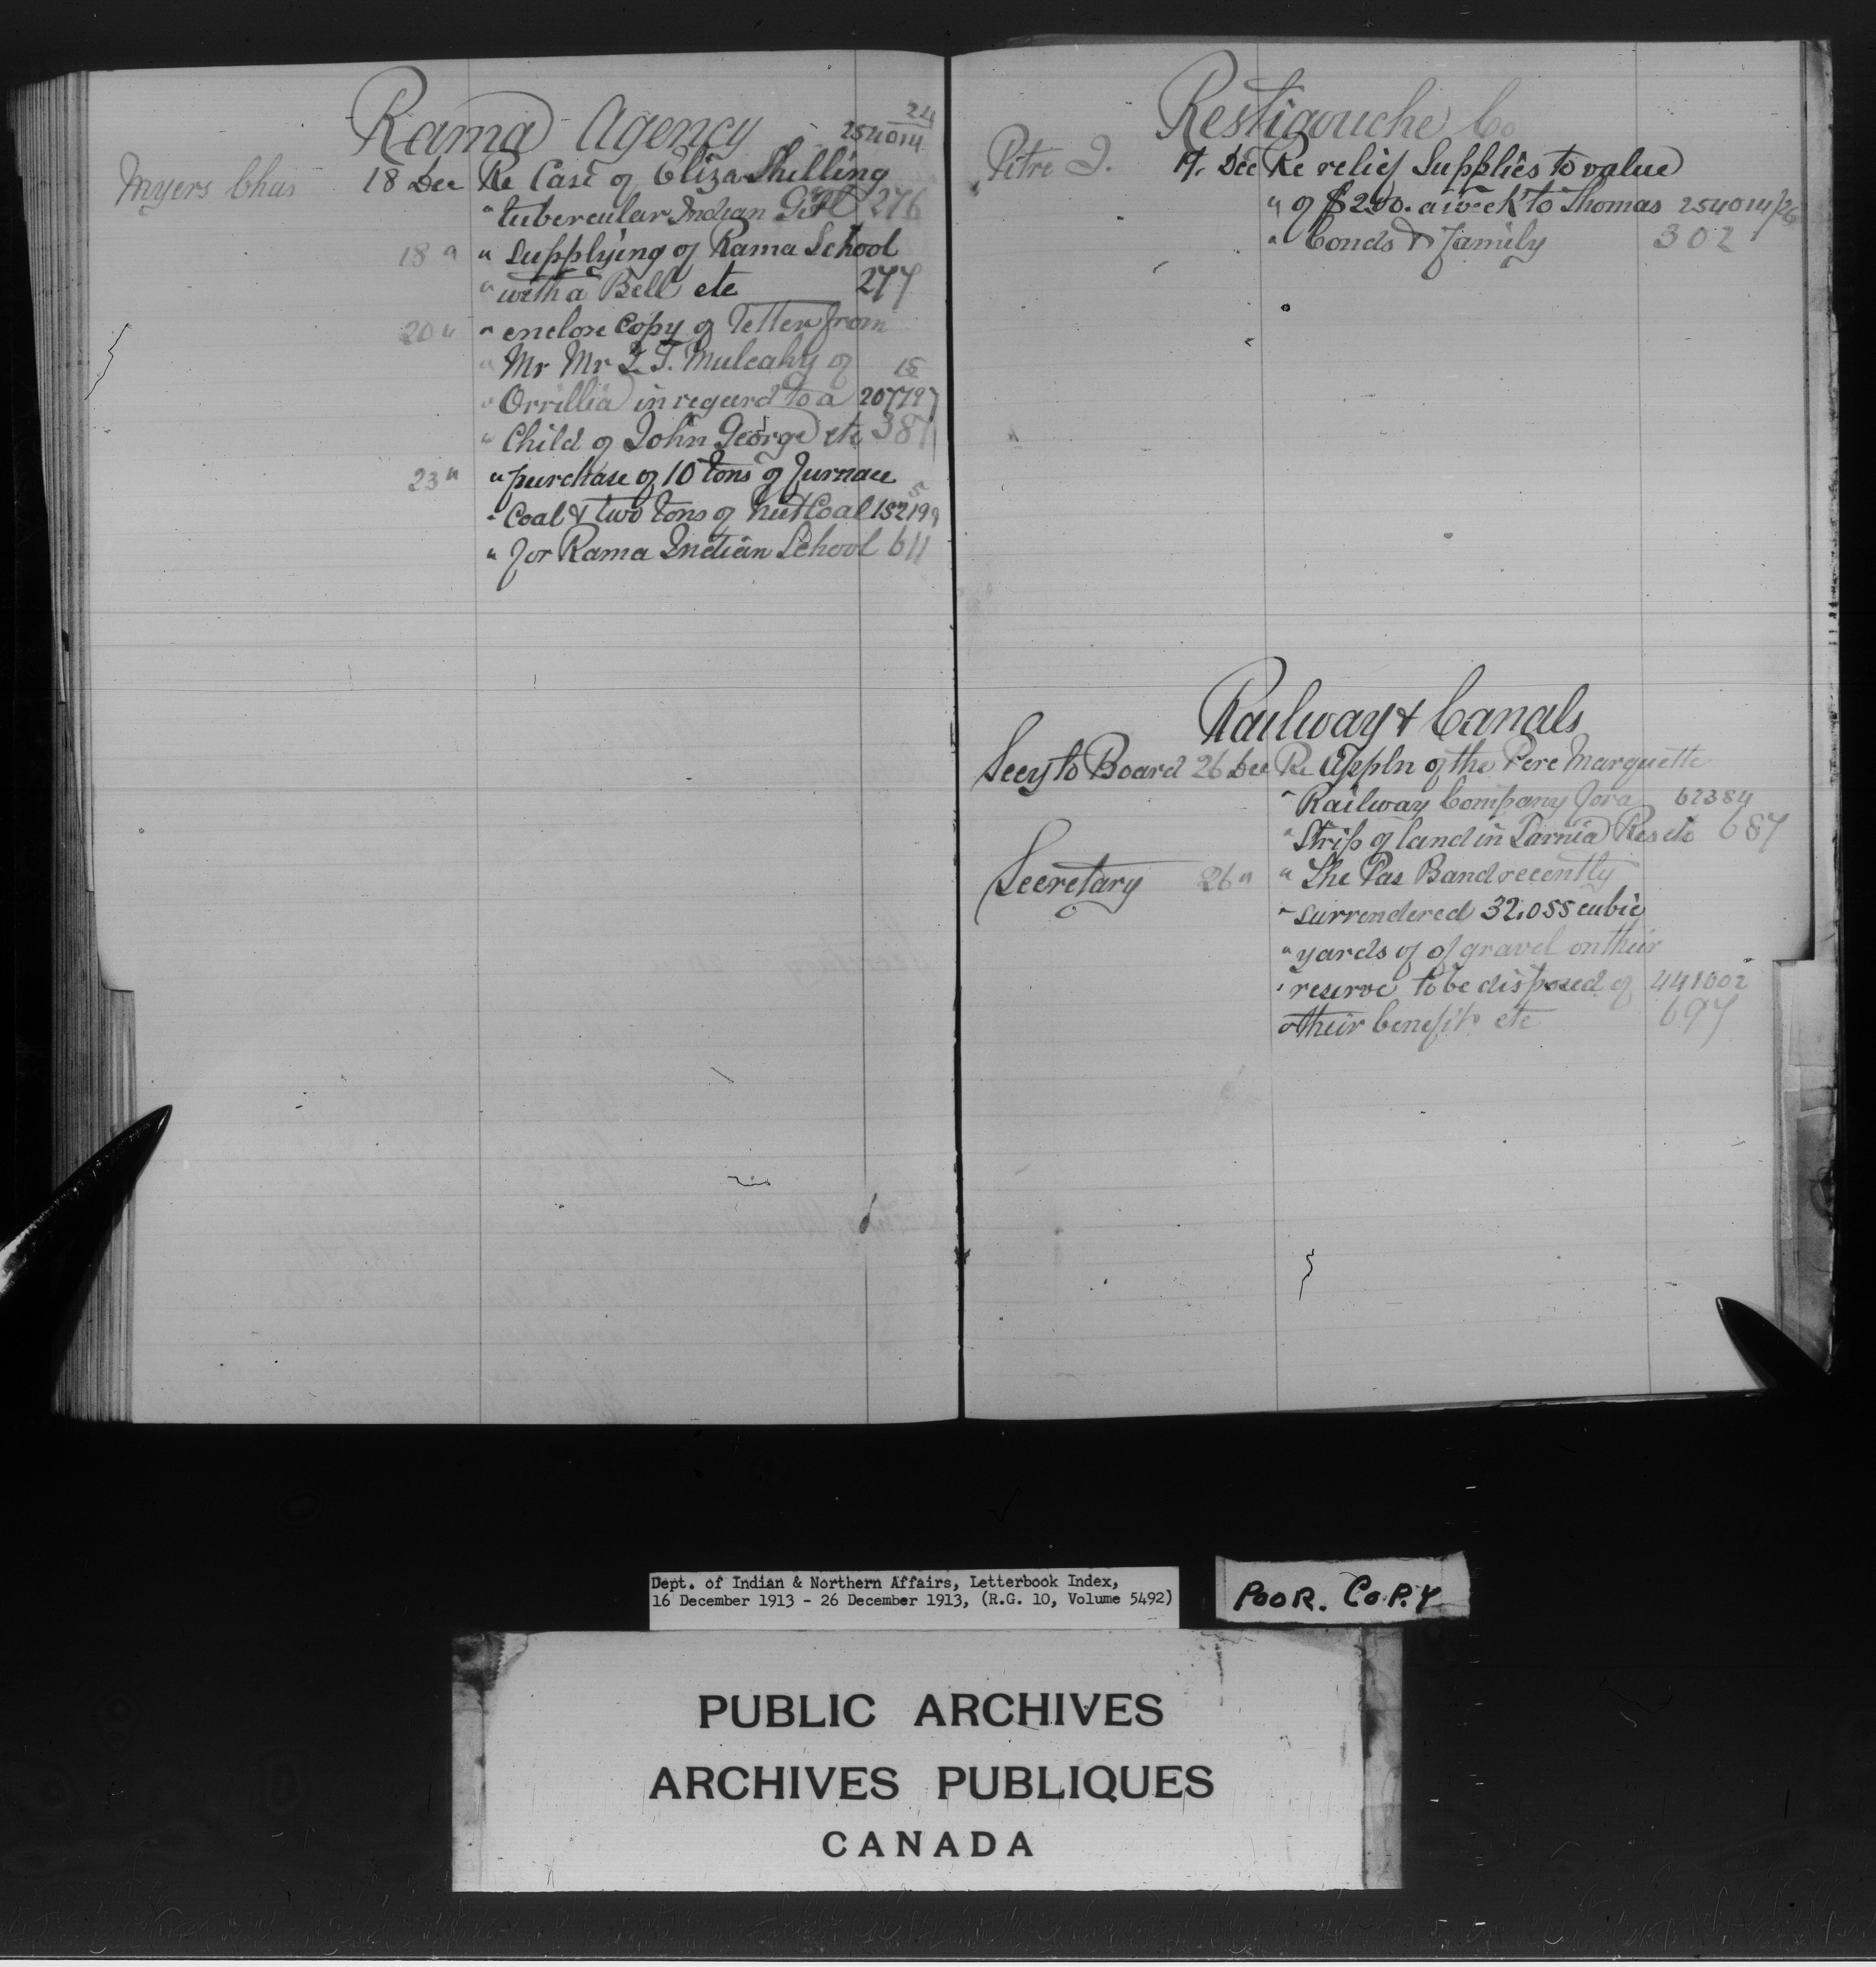 Rama Agency 24
254014
Myers Chas 18 Dec Re Case of Eliza Shilling
" tubercular Indian Girl 276
18 " " Supplying of Rama School
" with a Bell etc 277
20 " " enclose Copy of Letter from
" Mr Mr F. T. Mulcahy of 15
" Orrillia in regard to a 207797
" Child of John George etc 387
23 " " purchase of 10 tons of Furnace 5
" Coal & two tons of Nut Coal 152199
" for Rama Indian School 611
Restigouche Co
Pitre J. 19 Dec Re relief Supplies to value
" of $2.00. a week to Thomas 254014/26
" Conds & Family 302
Railway & Canals
Secy to Board 26 Dec Re Appln of the Pere Marquette
" Railway Company for a 62384
" Strip of land in Sarnia Res etc 687
Secretary 26 " " The Pas Band recently
" surrendered 32,055 cubic
" yards of of gravel on their
" reserve to be disposed of 441002
" their benefit etc 697
Dept. of Indian & Northern Affairs, Letterbook Index,
16 December 1913 - 26 December 1913, (R.G. 10, Volume 5492)
POOR. COPY
PUBLIC ARCHIVES
ARCHIVES PUBLIQUES
CANADA